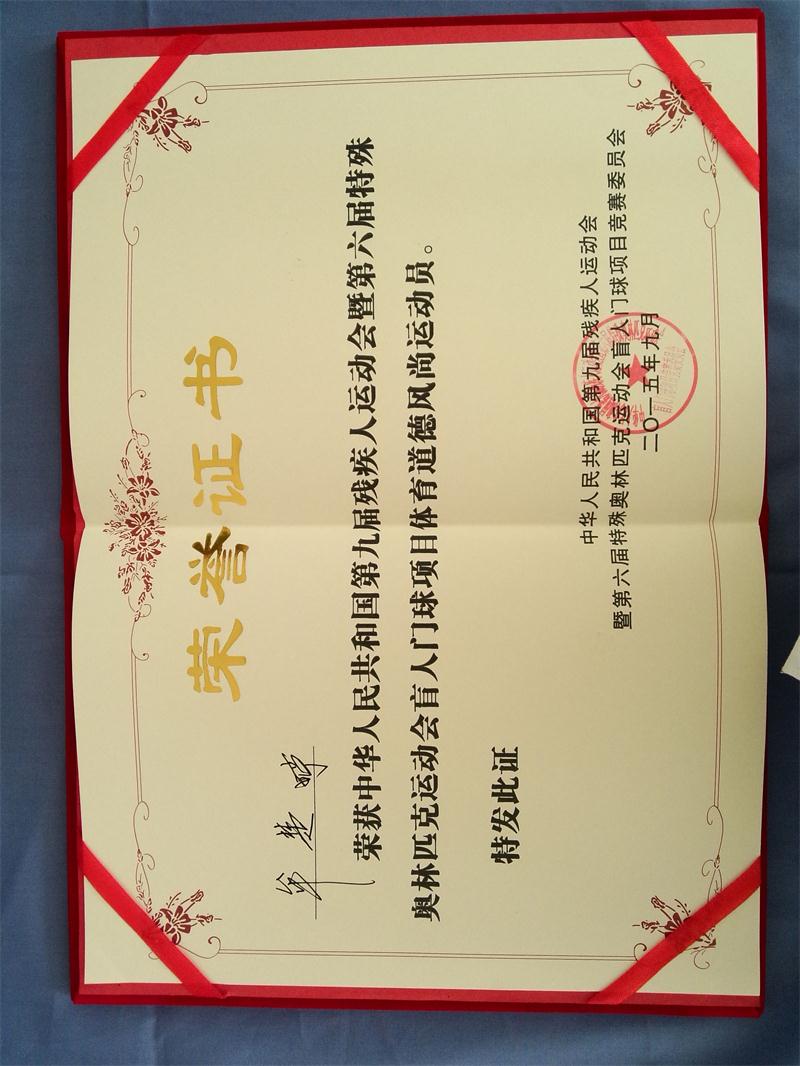 荣誉证书
荣获中华人民共和国第九届残疾人运动会暨第六届特殊
奥林匹克运动会盲人门球项目体育道德风尚运动员。
特发此证
中华人民共和国第九届残疾人运动会
暨第六届特殊奥林匹克运动会盲人门球项目竞赛委员会
二〇一五年九月